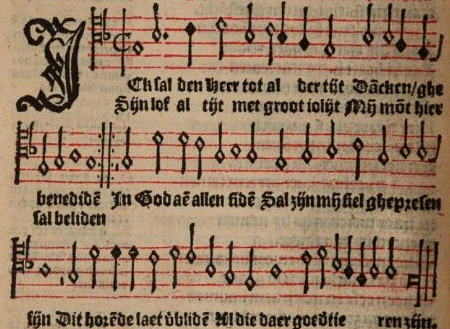 ICk sal den Heer tot al der tijt Dãcken/ghe
Sijn lof al tijt met groot iolijt Mij mõt hier
benedidẽ In God aẽ allen sidẽ Sal zijn mij siel ghepresen
sal beliden
sijn Dit horẽde laet v̉blidẽ Al die daer goedtie ren zijn.